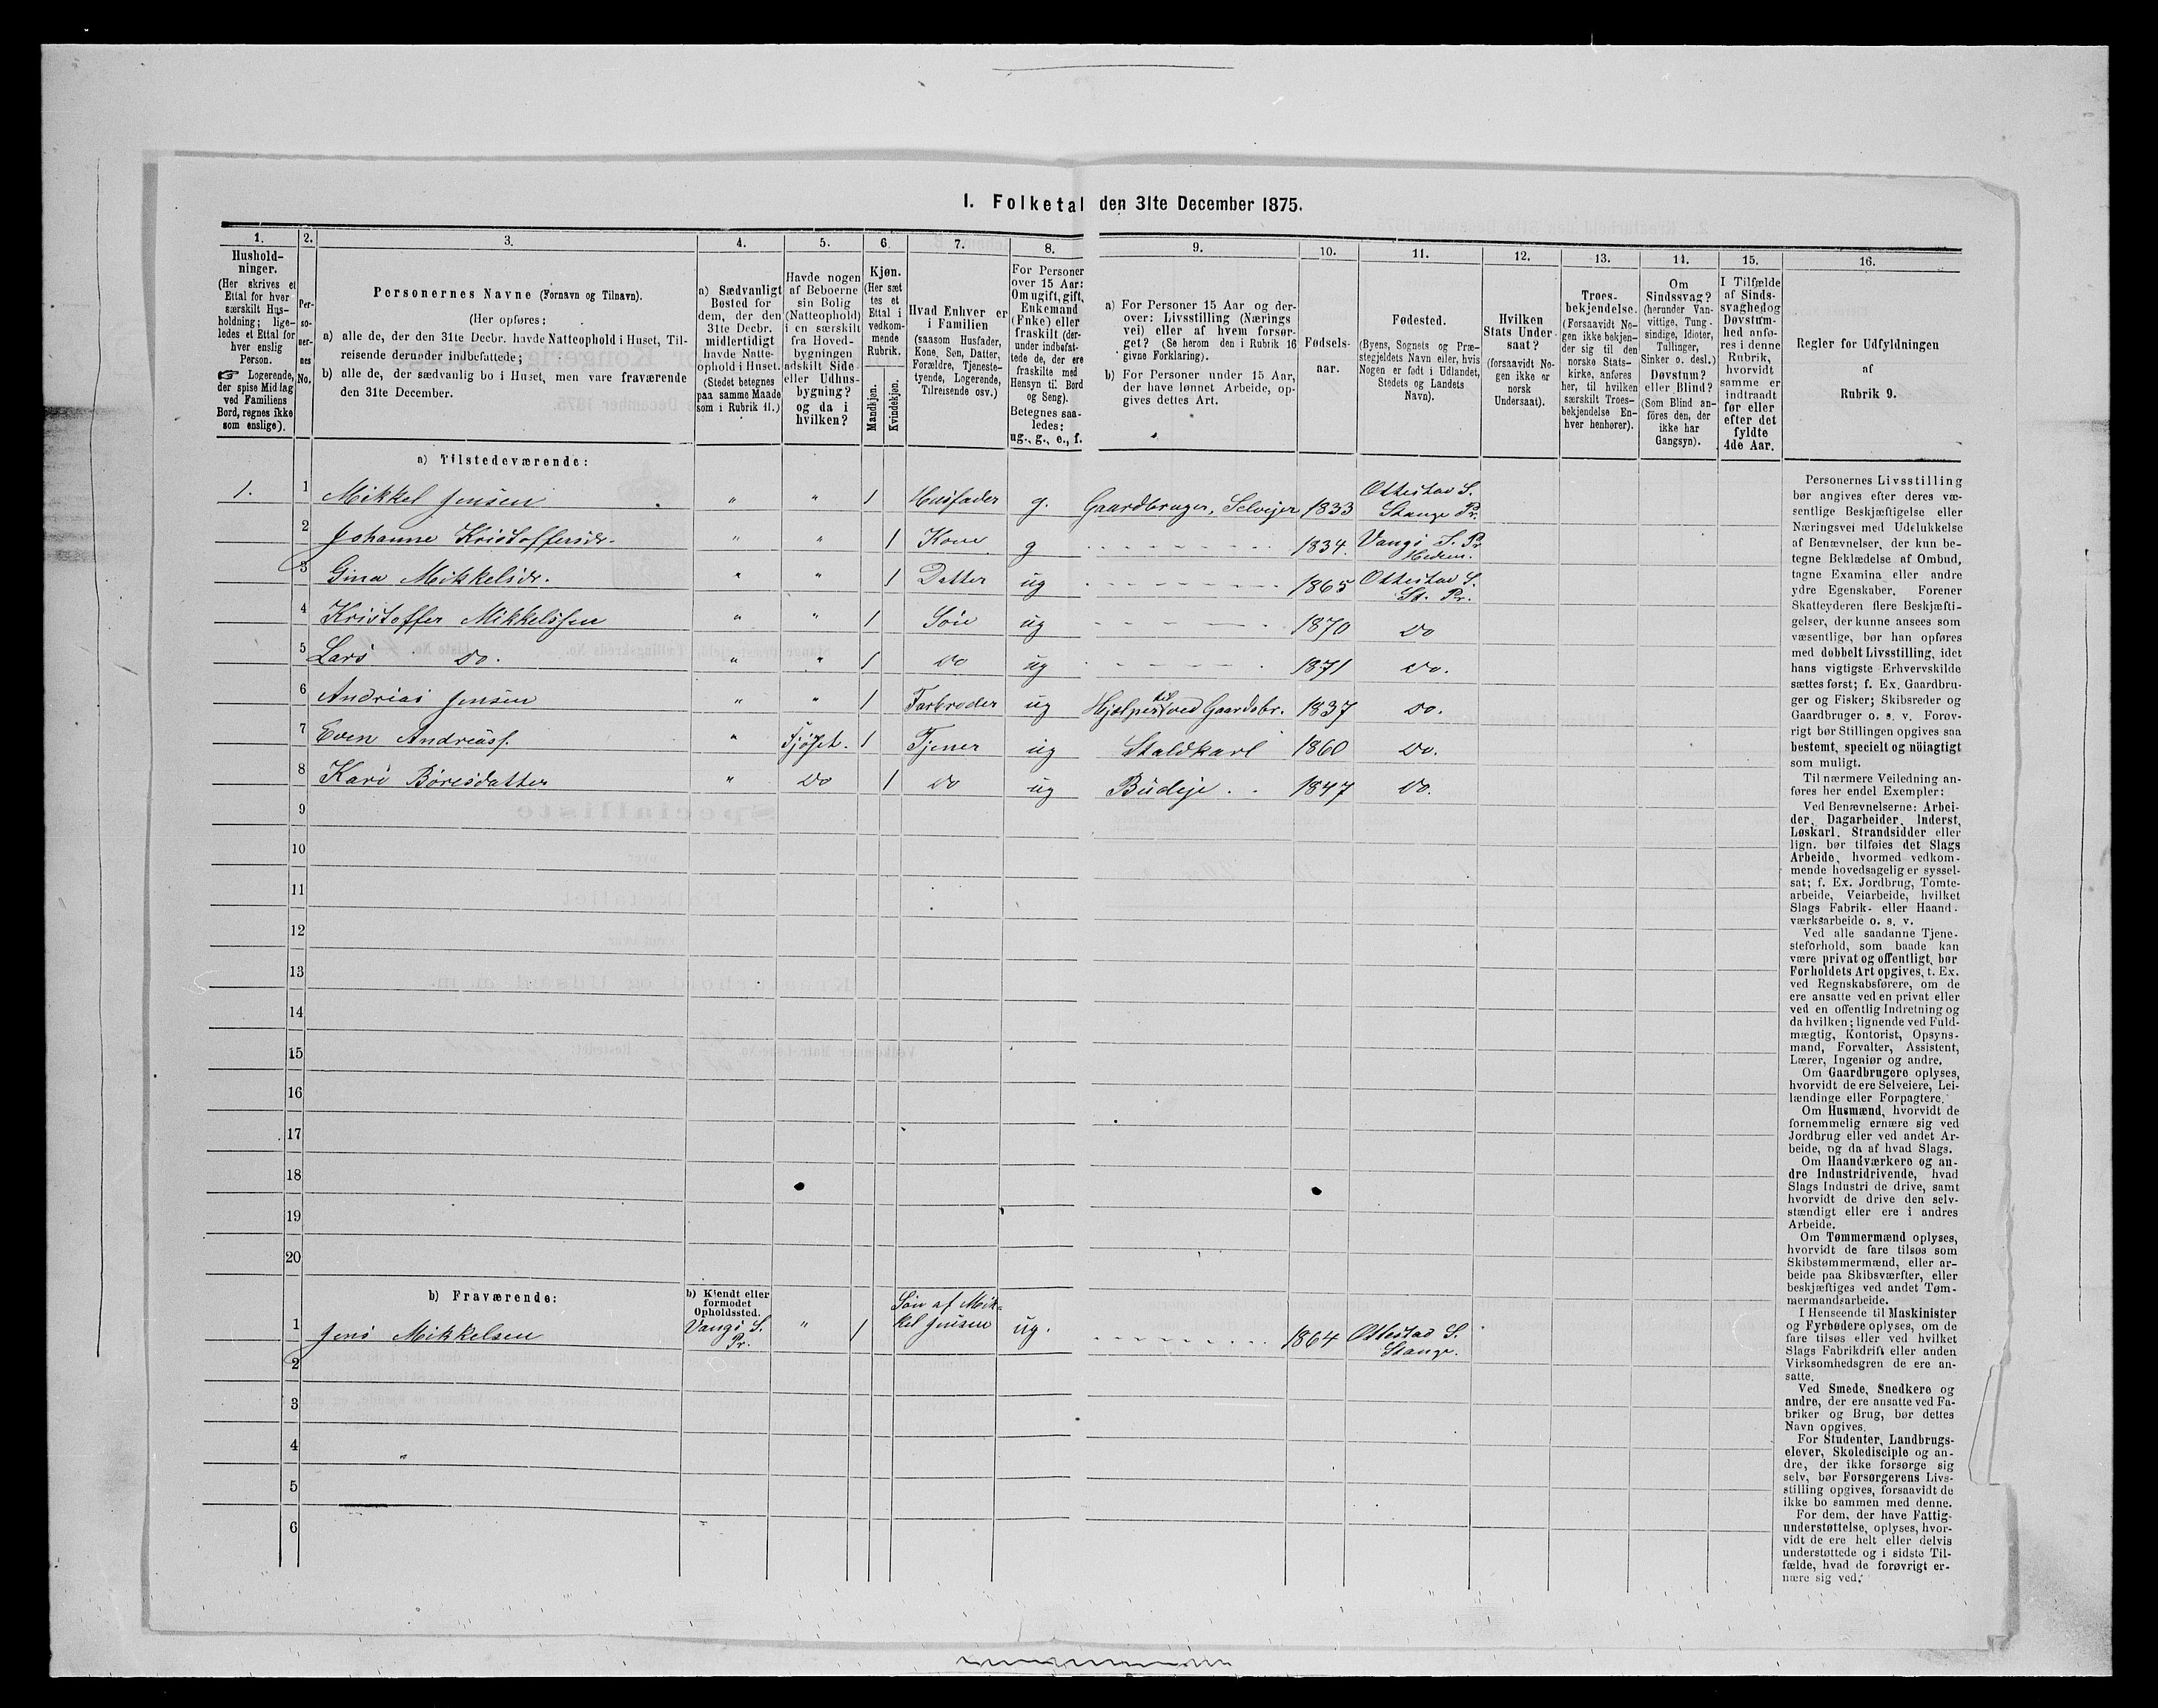 1. Folketal den 31te December 1875.
1. 2. 3. 4. 5. 6. 7. 8. 9. 10. 11. 12. 13. 14. 15. 16.
Hushold-
ninger.
(Her skrives et
Ettal for hver
særskilt Hus-
holdning; lige-
ledes et Ettal for
hver enslig
Person.
☞ Logerende,
der spise Middag
ved Familiens
Bord, regnes ikke
som enslige).
Per-
so-
ner-
nes
No.
Personernes Navne (Fornavn og Tilnavn).
(Her opføres:
a) alle de, der den 31te Decbr. havde Natteophold i Huset, Til-
reisende derunder indbefattede;
b) alle de, der sædvanlig bo i Huset, men vare fraværende
den 31te December.
a) Sædvanligt
Bosted for
dem, der den
31te Decbr.
midlertidigt
havde Natte-
ophold i Huset.
(Stedet betegnes
paa samme Maade
som i Rubrik 11.)
Havde nogen
af Beboerne
sin Bolig
(Natteophold)
i en særskilt
fra Hoved-
bygningen
adskilt Side-
eller Udhus-
bygning?
og da i
hvilken?
Kjøn.
(Her sæt
tes et
Ettal i
vedkom-
mende
Rubrik.
Mandkjøn.
Kvindekjøn.
Hvad Enhver er
i Familien
(saasom Husfader,
Kone, Søn, Datter,
Forældre, Tjeneste-
tyende, Logerende,
Tilreisende osv.)
For Personer
over 15 Aar:
Om ugift, gift,
Enkemand
(Enke) eller
fraskilt (der-
under indbefat-
tede de, der ere
fraskilte med
Hensyn til Bord
og Seng).
Betegnes saa-
ledes:
ug., g., e., f.
a) For Personer 15 Aar og der-
over: Livsstilling (Nærings
vei) eller af hvem forsør-
get? (Se herom den i Rubrik 16
givne Forklaring).
b) For Personer under 15 Aar,
der have lønnet Arbeide, op-
gives dettes Art.
Fødsels-
aar.
Fødested.
(Byens, Sognets og Præ-
stegjeldets Navn eller, hvis
Nogen er født i Udlandet,
Stedets og Landets
Navn).
Hvilken
Stats Under-
saat?
(forsaavidt No-
gen ikke er
norsk
Undersaat).
Troes-
bekjendelse.
(Forsaavidt No-
gen ikke bekjen-
der sig til den
norske Stats-
kirke, anføres
her, til hvilken
særskilt Troes-
bekjendelse En-
hver henhører).
Om
Sindssvag?
(herunder Van-
vittige, Tung-
sindige, Idioter,
Tullinger,
Sinker o. desl.)
Døvstum?
eller Blind?
(Som Blind an-
føres den, der
ikke har
Gangsyn).
I Tilfælde
af Sinds-
svaghed og
Døvstum-
hed anfø-
res i denne
Rubrik,
hvorvidt
samme er
indtraadt
før eller
efter det
fyldte
4de Aar.
Regler for Udfyldningen
af
Rubrik 9.
a) Tilstedeværende:
1. 1 Mikkel Jensen " " 1 Husfader g. Gaardbruger, Selveier 1833 Ottestad S.
Stange Pr.
2 Johanne Kristoffersdr. " " 1 Kone g 1834. Vangs S. Pr
Hedem.
3 Gina Mikkelsdr. " " 1 Datter ug 1865 Ottestad S.
St. Pr.
4 Kristoffer Mikkelssen " " 1 Søn ug 1870 Do
5 Lars Do. " " 1 Do ug 1871 Do.
6 Andrias Jensen " " 1 Farbroder ug Hjelper til ved Gaardsbr. 1837 Do.
7 Even Andreass. " Fjøset. 1 Tjener ug Staldkarl 1860 Do.
8 Kari Børesdatter " Do 1 Do ug Budeje 1847 Do.
9
10
11
12
13
14
15
16
17
18
19
20
b) Fraværende:
b) Kjendt eller
formodet
Opholdssted.
1 Jens Mikkelsen Vangs S.
Pr. " 1 Søn af Mik-
kel Jensen ug. 1864 Ottestad S.
Stange.
2
3
4
5
6
Personernes Livsstilling
bør angives efter deres væ-
sentlige Beskjæftigelse eller
Næringsvei med Udelukkelse
af Benævnelser, der kun be-
tegne Beklædelse af Ombud,
tagne Examina eller andre
ydre Egenskaber. Forener
Skatteyderen flere Beskjæfti-
gelser, der kunne ansees som
væsentlige, bør han opføres
med dobbelt Livsstilling, idet
hans vigtigste Erhvervskilde
sættes først; f. Ex. Gaardbru-
ger og Fisker; Skibsreder og
Gaardbruger o. s. v. Forøv-
rigt bør Stillingen opgives saa
bestemt, specielt og nöiagtigt
som muligt.
Til nærmere Veiledning an-
føres her endel Exempler:
Ved Benævnelserne: Arbei-
der, Dagarbeider, Inderst,
Løskarl, Strandsidder eller
lign. bør tilføies det Slags
Arbeide, hvormed vedkom-
mende hovedsagelig er syssel-
sat; f. Ex. Jordbrug, Tomte-
arbeide, Veiarbeide, hvilket
Slags Fabrik- eller Haand-
værksarbeide o. s. v.
Ved alle saadanne Tjene-
steforhold, som baade kan
være privat og offentligt, bør
Forholdets Art opgives, t. Ex.
ved Regnskabsførere, om de
ere ansatte ved en privat eller
ved en offentlig Indretning og
da hvilken; lignende ved Fuld-
mægtig, Kontorist, Opsyns-
mand, Forvalter, Assistent,
Lærer, Ingeniør og andre.
Om Gaardbrugere oplyses,
hvorvidt de ere Selveiere, Lei-
lændinge eller Forpagtere.
Om Husmænd, hvorvidt de
fornemmelig ernære sig ved
Jordbrug eller ved andet Ar-
beide, og da af hvad Slags.
Om Haandværkere og an-
dre Industridrivende, hvad
Slags Industri de drive, samt
hvorvidt de drive den selv-
stændigt eller ere i andres
Arbeide.
Om Tømmermænd oplyses,
hvorvidt de fare tilsøs som
Skibstømmermænd, eller ar-
beide paa Skibsværfter, eller
beskjæftiges ved andet Tøm-
mermandsarbeide.
I Henseende til Maskinister
og Fyrbødere oplyses, om de
fare tilsøs eller ved hvilket
Slags Fabrikdrift eller anden
Virksomhedsgren de ere an-
satte.
Ved Smede, Snedkere og
andre, der ere ansatte ved Fa-
briker og Brug, bør dettes
Navn opgives.
For Studenter, Landbrugs-
elever, Skoledisciple og an-
dre, der ikke forsørge sig
selv, bør Forsørgerens Livs-
stilling opgives, forsaavidt de
ikke bo sammen med denne.
For dem, der have Fattig-
understøttelse, oplyses, hvor-
vidt de ere helt eller delvis
understøttede og i sidste Til-
fælde, hvad de forøvrigt er-
nære sig ved.